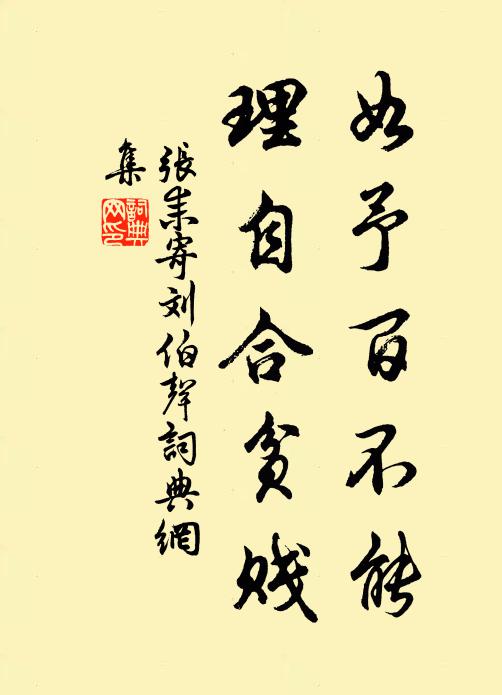 如予百不能
理自合貧贱
張耒寄刘伯聲詞典網
集
詞典
网印